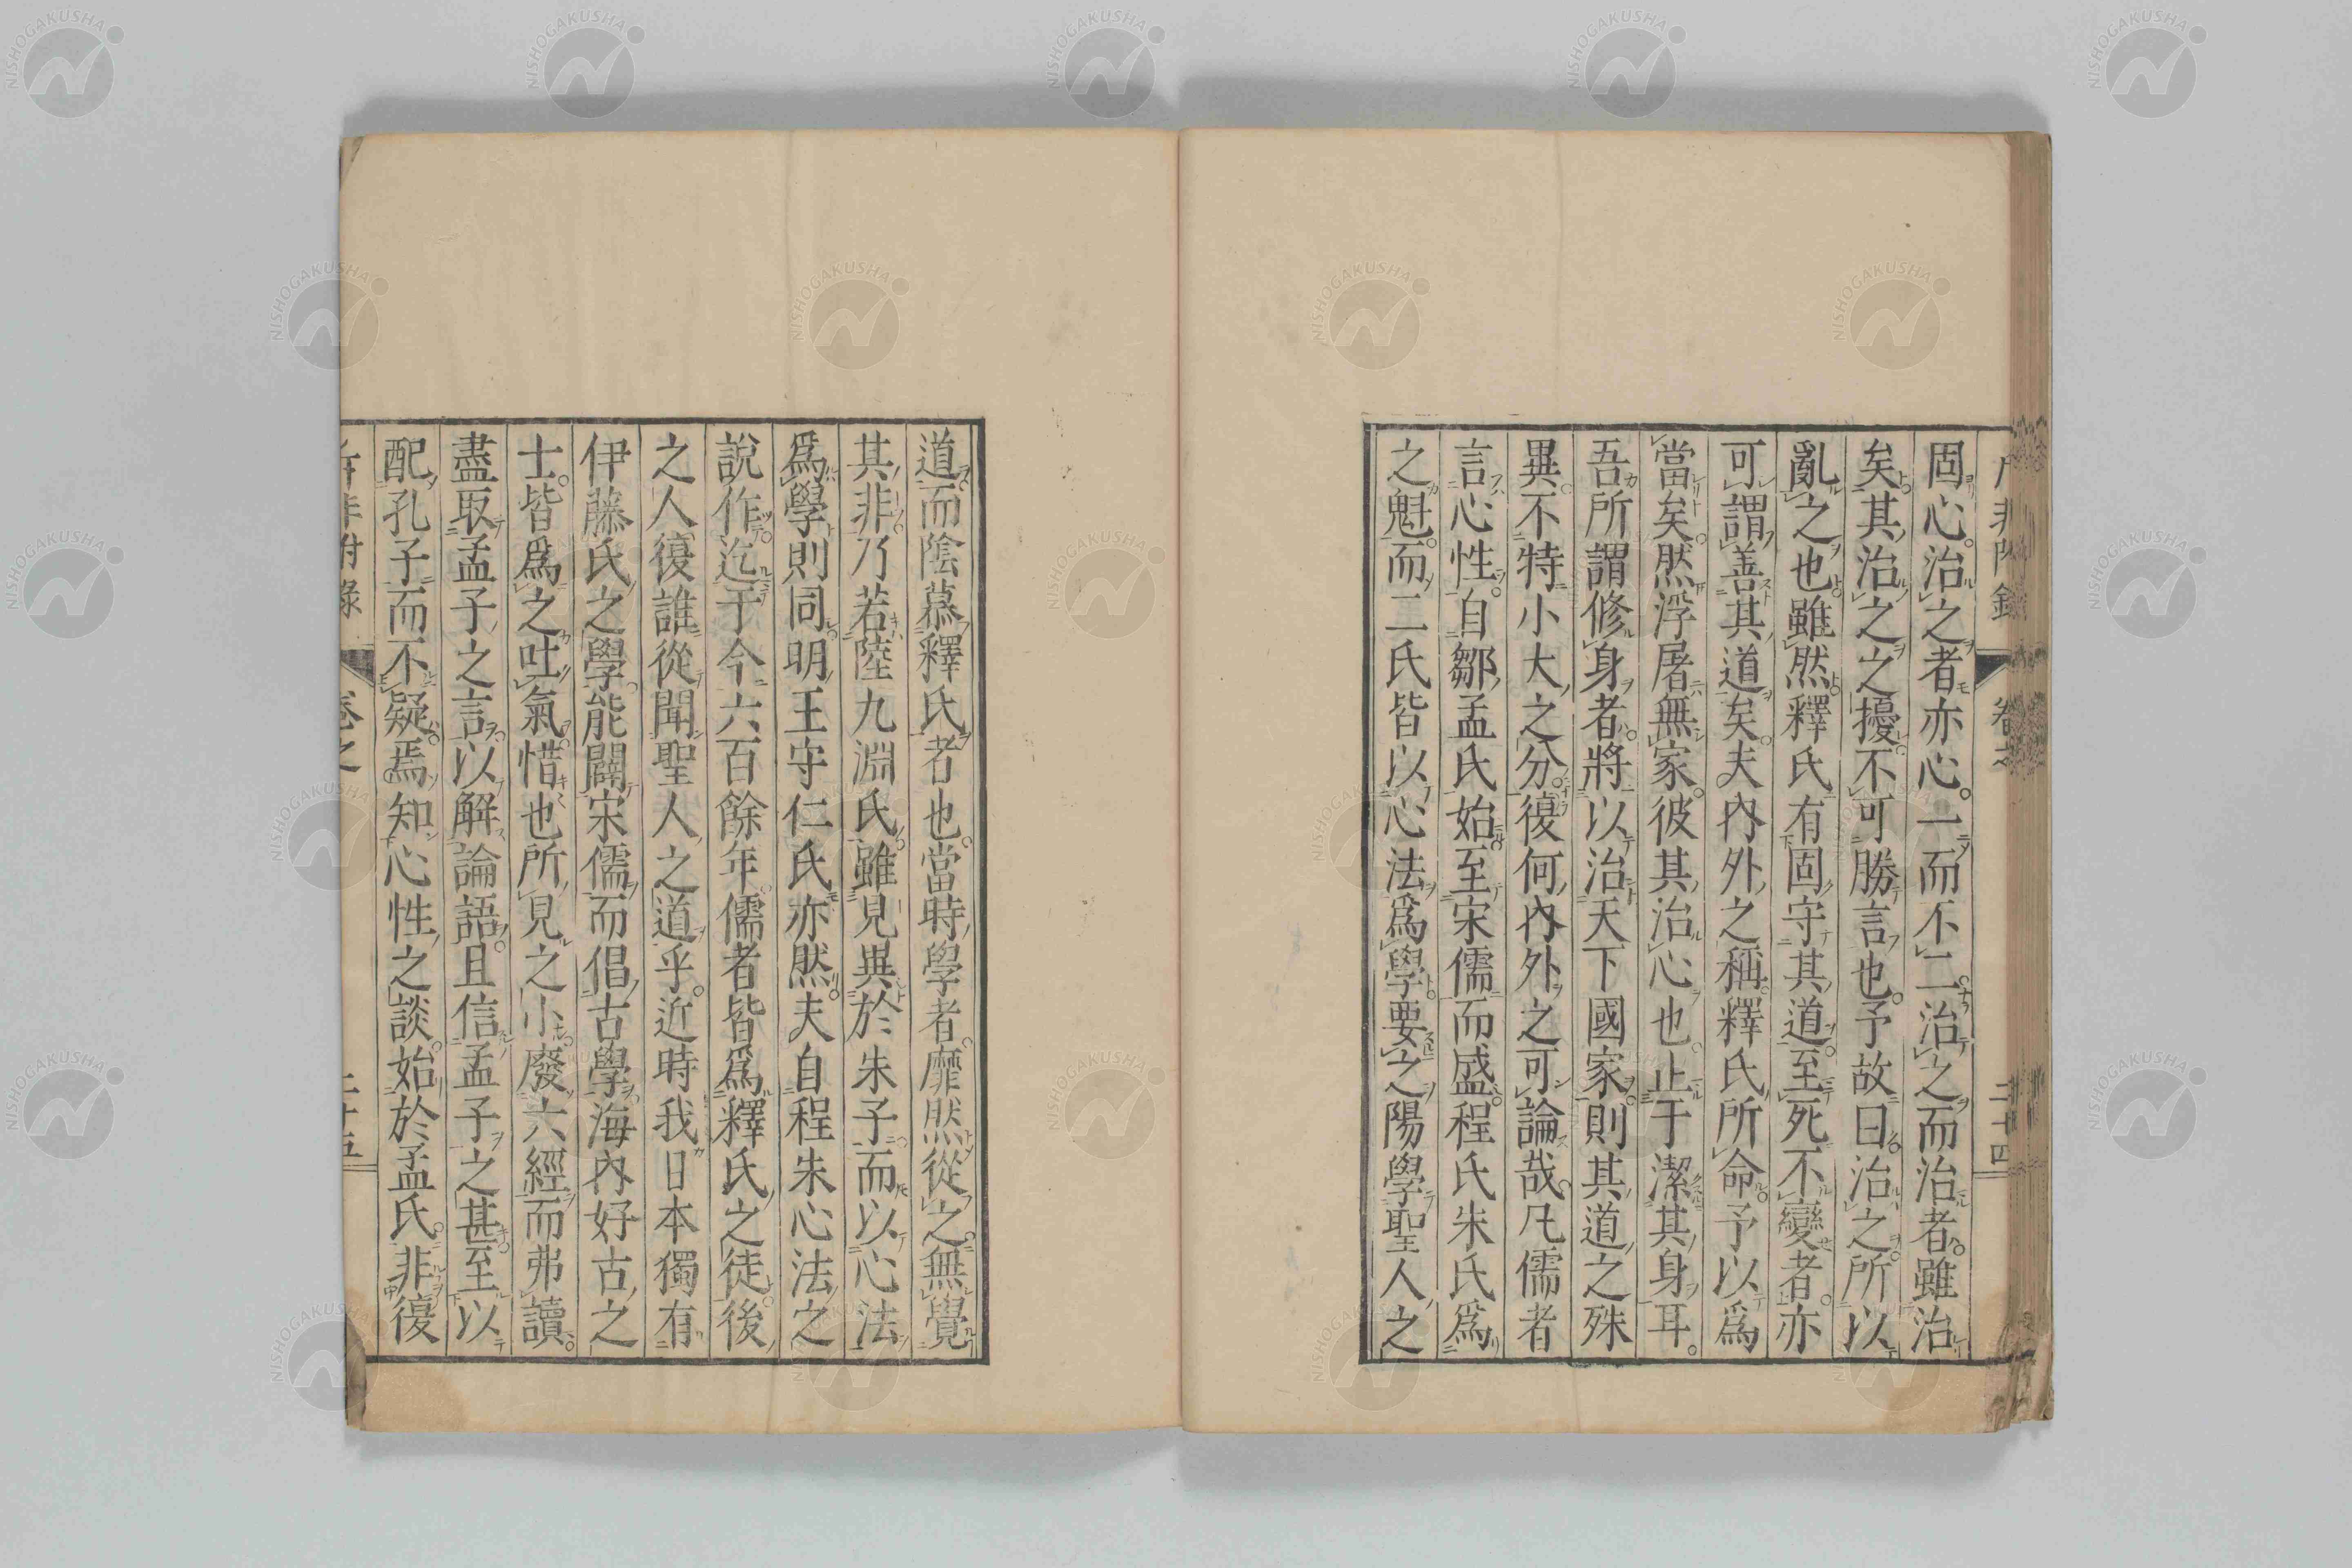 固心。治之者亦心。一而不二。治之而治者。雖治
矣其治之之擾不可勝言也。予故曰。治之。所以
亂之也。雖然釋氏有固守其道。至死不變者。亦
可謂善其道矣。夫內外之稱。釋氏所命。予以爲
當矣。然浮屠無家。彼其治心也。止于潔其身耳。
吾所謂修身者。將以治天下國家。則其道之殊
異。不特小大之分。復何內外之可論哉。凡儒者
言心性。自鄒孟氏始。至宋儒而盛。程氏朱氏爲
之魁。而二氏皆以心法爲學。要之陽學聖人之
道。而陰慕釋氏者也。當時學者。靡然從之。無覺
其非。乃若陸九淵氏。雖見異於朱子。而以心法
爲學則同。明王守仁氏亦然。夫自程朱心法之
說作。迄于今六百餘年。儒者皆爲釋氏之徒。後
之人復誰從聞聖人之道乎。近時我日本獨有
伊藤氏之學。能闢宋儒而倡古學。海內好古之
士。皆爲之吐氣。惜也所見之小。廢六經而弗讀。
盡取孟子之言。以解論語。且信孟子之甚。至以
配孔子而不疑焉。知心性之談。始於孟氏。非復
非附錄
卷之
二十四
附錄
卷之
二十五
NISHOGAKUSHA